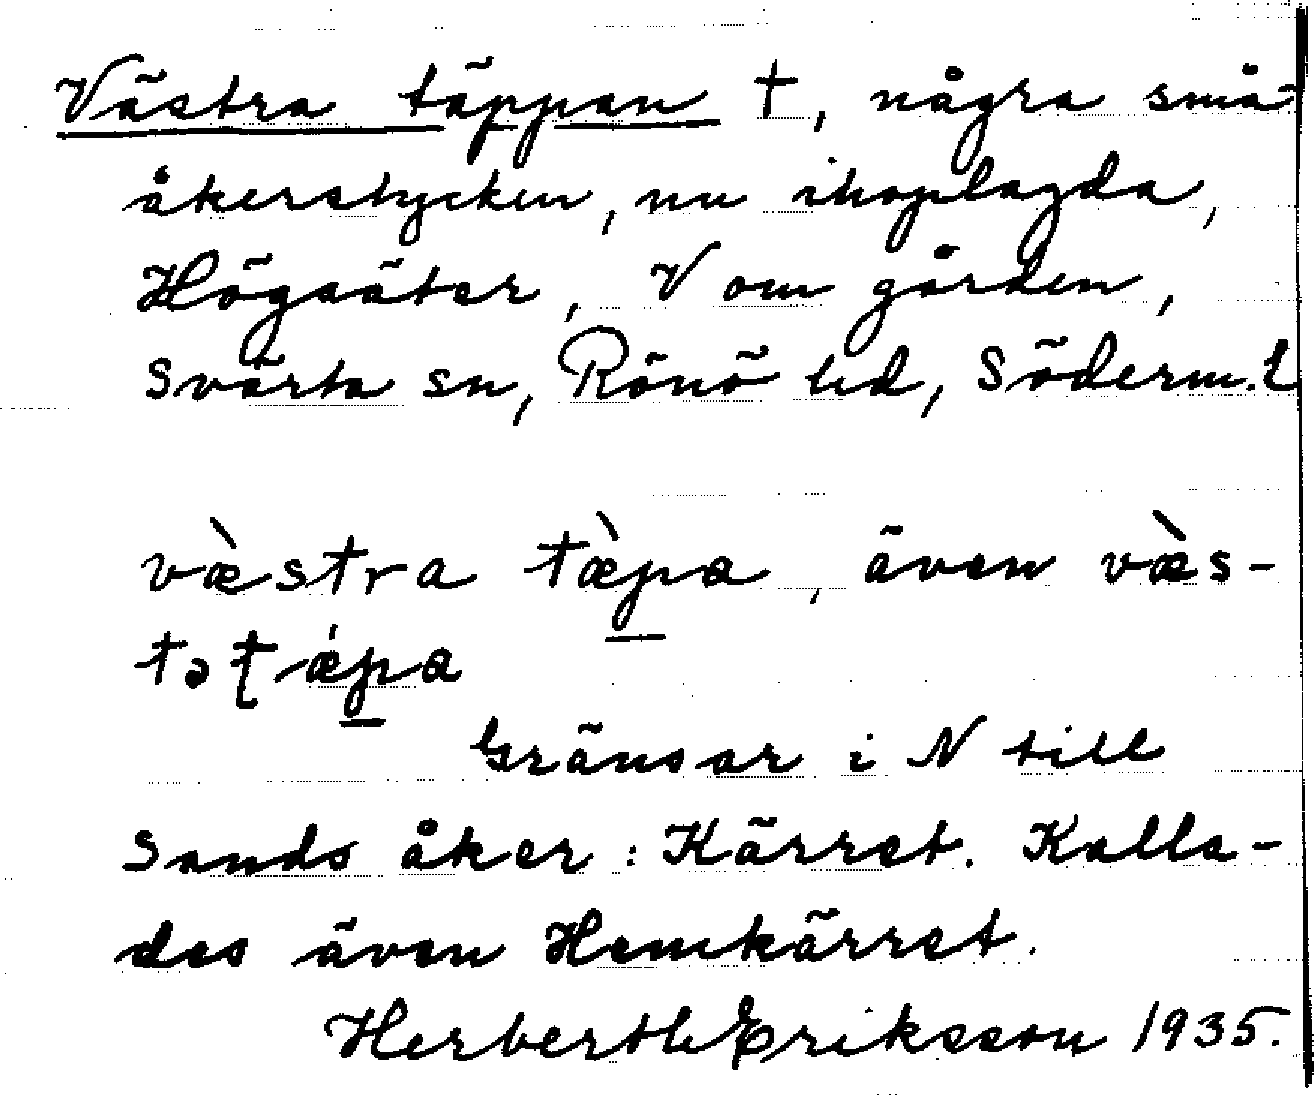 Västra täppan †, några små
åkerstycken, nu ihoplagda,
Högsäter, V om gården,
Svärta sn, Rönö hd, Söderm. l
væ̀stra tæ̀p̲a, även væ̀s-
tətǽp̲a
Gränsar i N till
Sands åker: Kärret. Kalla-
des även Hemkärret.
Herberth Eriksson 1935.